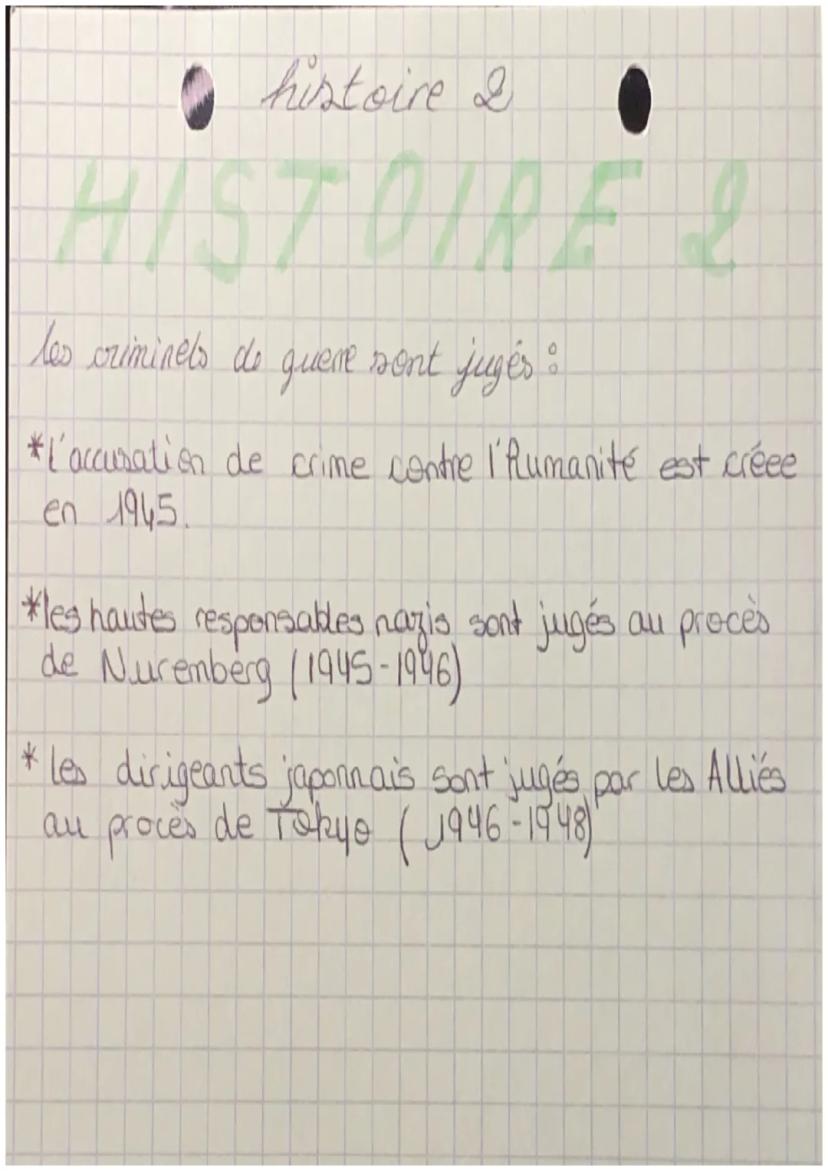 histoire 2
HISTOIRE 2
les criminels de guerre sont jugés :
*l'accusation de crime contre l'humanité est créee
en 1945.
*les hautes responsables nazis sont jugés au procès
de Nuremberg (1945-1946)
* les dirigeants japonnais sont jugés par les Alliés
au procès de Tokyo (1946-1948)